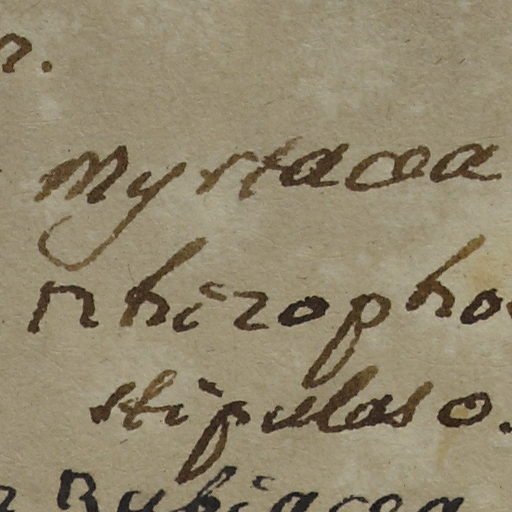 Myrtacea
rhizopho
stipulas o.
Rubiacea